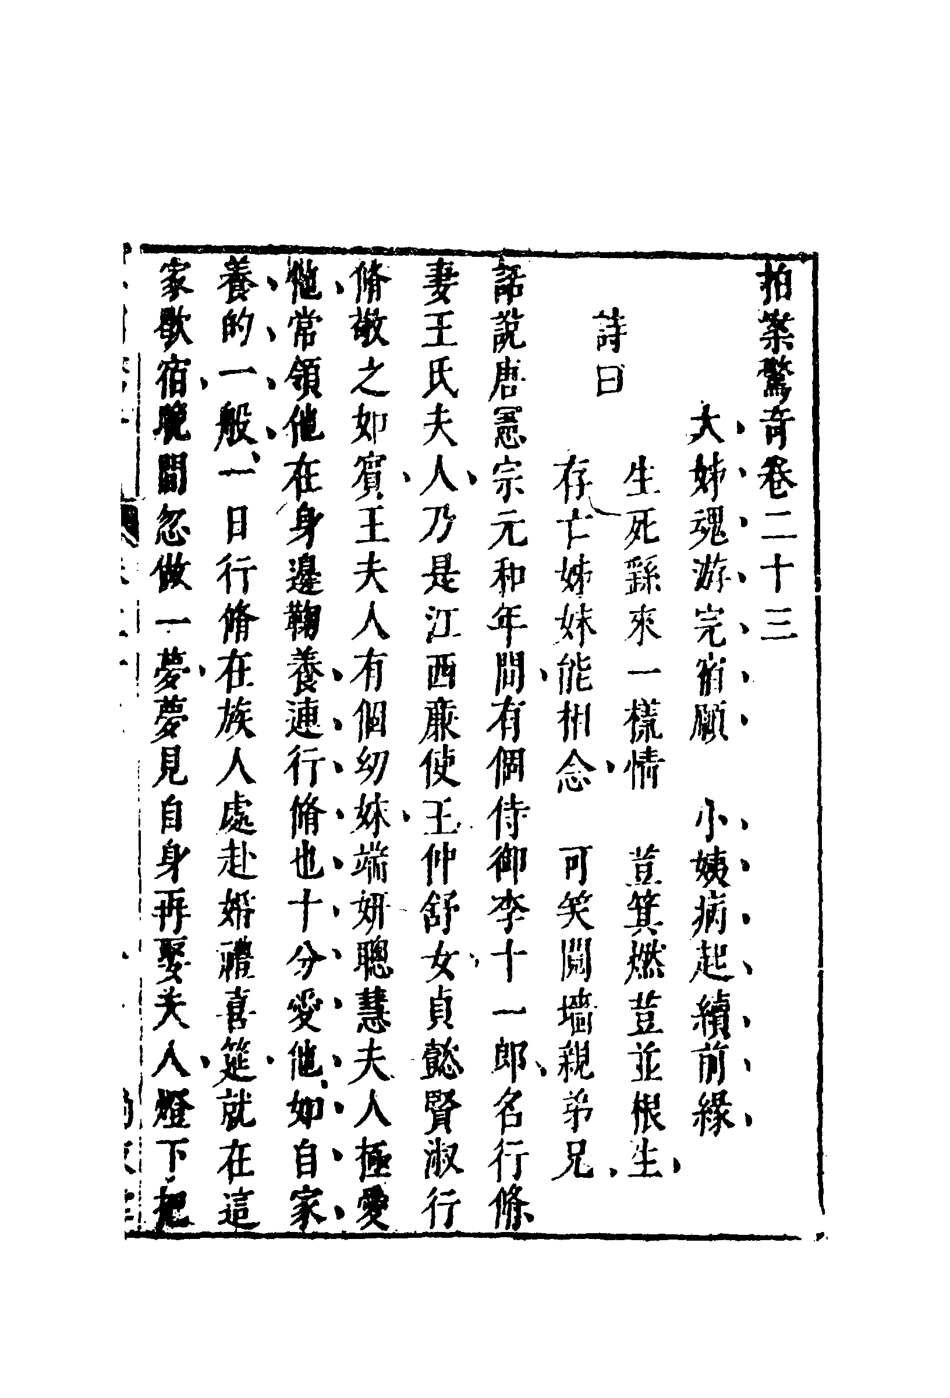 拍案驚奇卷二十三
大姊魂游完宿願　小姨病起續前緣
詩曰
生死繇來一樣情　荳箕燃荳並根生
存亡姊妹能相念　可笑鬩墻親弟兄
話說唐憲宗元和年間有個侍御李十一郎名行脩
妻王氏夫人乃是江西㢘使王仲舒女貞懿賢淑行
脩敬之如賓王夫人有個幼妹端妍聰慧夫人極愛
他常領他在身邊鞠養連行脩也十分愛他如自家
養的一般一日行脩在族人處赴婚禮喜筵就在這
家歇宿晚間忽做一夢夢見自身再娶夫人燈下把